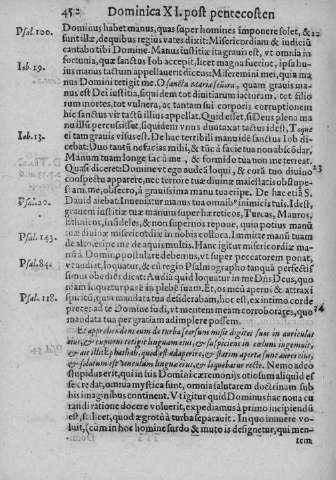 452 Dominica XI. post pentecosten
Psal. 100. Dominus habet manus, quas super homines imponere solet, & 22
sunt illæ, de quibus regius vates dixit: Misericordiam & iudiciũ
cantabo tibi Domine. Manus iustitiæ ita grauis est, vt omnia in-
Iob. 19. fortunia, quæ sanctus Iob accepit, licet magna fuerint, ipsa hu-
ius manus tactum appellauerit dicens: Miseremini mei, quia ma-
nus Domini tetigit me. O sancta æterna iam, quam grauis manus
est Dei iustitia, siquidem tot diuitiarum iacturam, tot filio
rum mortes, tot vulnera, ac tantam sui corporis corruptionem
hic sanctus vir tactũ illius appellat. Quid esset, si Deus plena ma
nu illũ percussisset, siquidem vnus duntaxat tactus idest, Toque
Iob. 13. ei tam grauis visus est. De hac terribili manu idē sanctus Iob di-
cebat: Duo tantũ ne facias mihi, & tũc à facie tua non abscōdar,
Manum tuam longe fac à me, & formido tua non me terreat.
Quasi diceret: Domine vt ego audeā loqui, & corā tuo diuino 23
conspectu apparere, nec terrore tuæ diuinæ maiestatis obstupe-
scam, me, obsecro, à grauissima manu tua eripe. De hac etiā S.
Psal. 20. Dauid aiebat: Inueniatur manus tua omnib. inimicis tuis. Idest,
grauem iustitiæ tuæ manus super hæreticos, Turcas, Mauros,
Ethnicos, infideles, & non super nos repone, quia potius manũ
tuæ diuinæ misericordiæ in nobis colloca. Immitte manũ tuam
Psal. 143. de alto, eripe me de aquis multis. Hanc igitur misericordiæ ma-
nũ à Domino postulare debemus, vt super peccatorem ponat,
Psal. 84. vt audiat, loquatur, & cũ regio Psalmographo tanquā perfectissi
simus obediēs dicat: Audiā quid loquatur in me Dñs Deus, quo
niam loquetur pacē in plebē suam. Et, os meũ aperui & attraxi
Psal. 118. spiritũ, quia mandata tua desiderabam, hoc est, ex intimo corde
precor à te Domine sudi, vt mentem meam corrobores, quo 24
mandata tua per gratiam adimplere possem.
Et apprehendens eum de turba seorsum misit digitos suos in auriculas
eius, & expuens tetigit linguam eius, & suspiciens in cœlum ingemuit,
& ait illi: Ephphethah, quod est adaperire, & statim apertæ sunt aures eius,
& solutum est vinculum linguæ eius, & loquebatur recte. Nemo adeo
stupidus erit, qui in his Domini cæremonijs otiosum aliquid es
se credat, omnia mystica sunt, omnia salutarem doctrinam sub
his imaginibus continent. Vt igitur quid Dominus hac noua cu
randi ratione docere voluerit, expediamus à primo incipiendũ
est, scilicet, quod ægrotũ à turba separauit. In quo innuere vo-
luit, (cùm in hoc homine surdo & muto is designetur, qui men-
tem